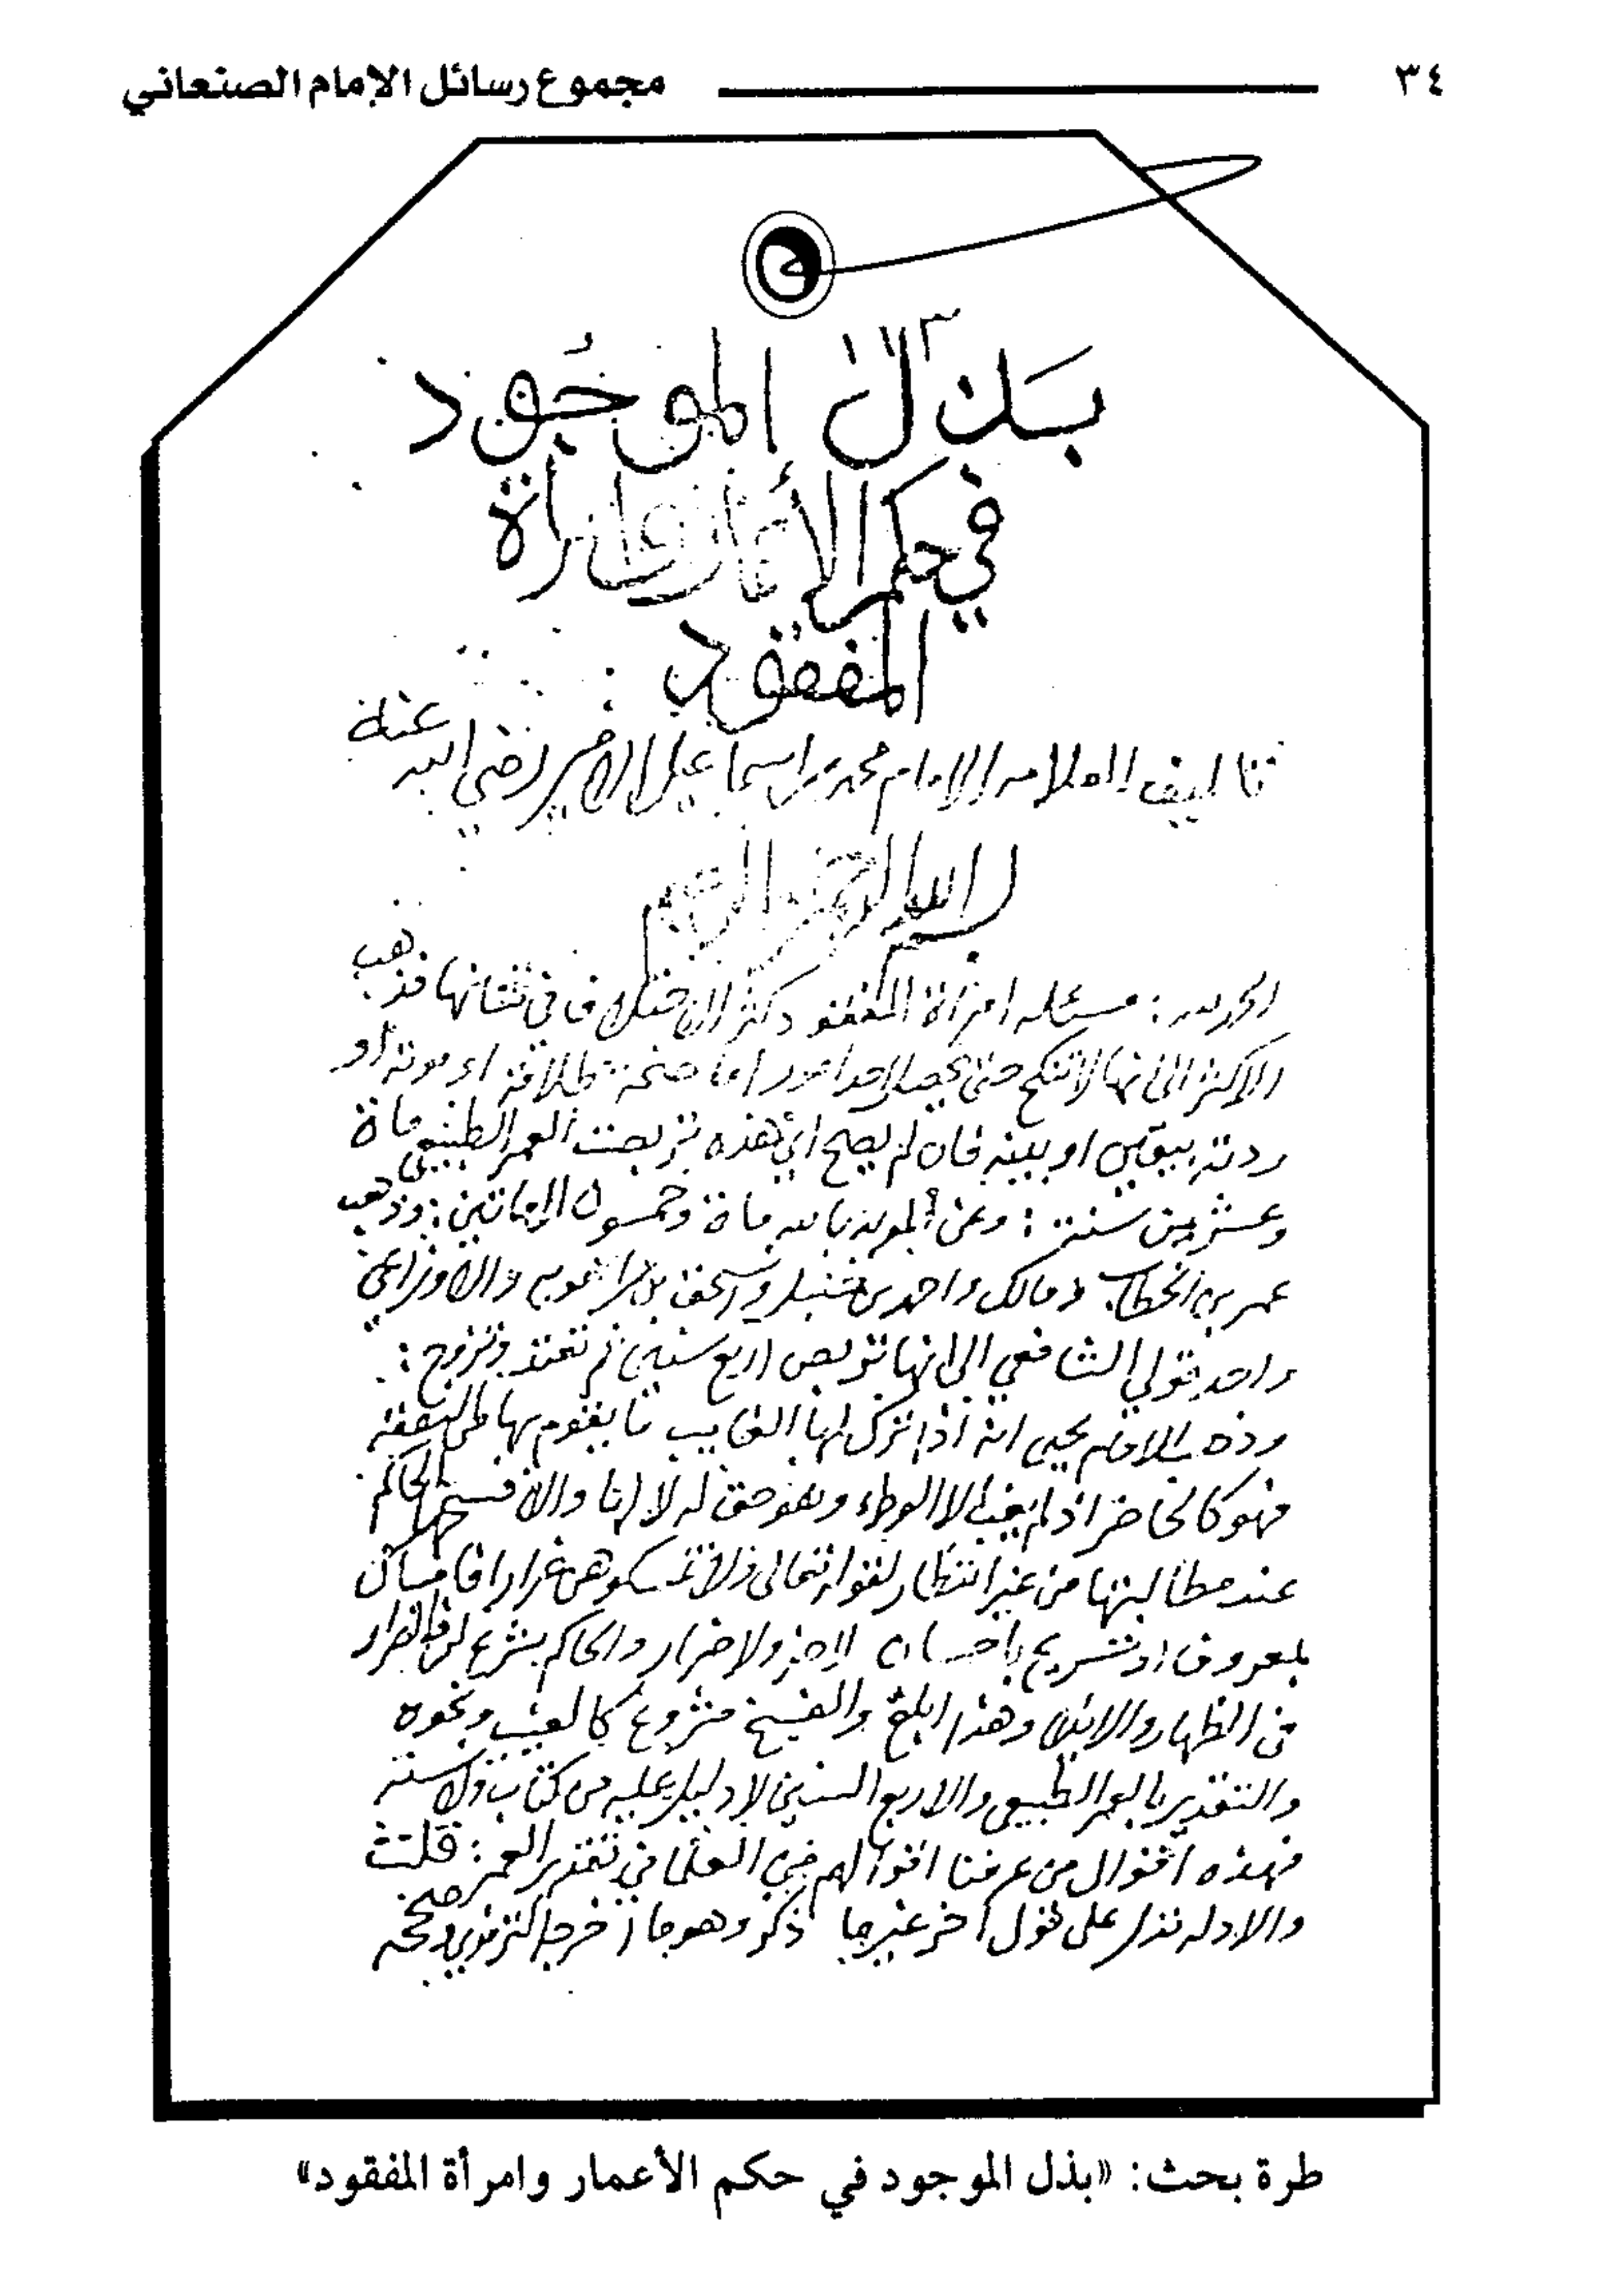 ٣٤
مجموع رسائل الإمام الصنعاني
١١٣
بذل الموجود
في حكم الأعمار وامرأة
المفقود
تاليف العلامه الامام محمد بن اسماعيل الامير رضي الله عنه
بسم الله الرحمن الرحيم
الحمد لله : مسئله امرأة المفقود كثر الاختلاف في شانها فذهب
الاكثر الى انها لا تنكح حتى يحصل احد امور اما صحة طلاقه او موته أو
ردته بيقين او بينه فان لم يصح اي هذه تربصت العمر الطبيعي مأة
وعشرين سنة : وعن المويد بالله مأة وخمسون الى مأتين : وذهب
عمر بن الخطاب ومالك واحمد بن حنبل واسحق بن راهويه والاوزاعي
واحد قولي الشافعي الى انها تربص اربع سنين ثم تعتد وتزوج :
وذهب الامام يحيى انه اذا ترك لها الغايب ما يقوم بها
فهو كالحاضر اذ لم يفت الا الوطء وهو حق له لا لها والا فسخها الحاكم
عند مطالبتها من غير انتظار لقوله تعالى ولا تمسكوهن ضرارا فامساك
بمعروف او تسريح باحسان لا ضرر ولا ضرار والحاكم شرع لرفع الضرار
في الظهار والايلا وهذا ابلغ والفسخ مشروع كالعيب ونحوه
والتقدير بالعمر الطبيعي والاربع السنين لا دليل عليه من كتاب ولا سنه
فهذه اقوال من عرفنا اقوالهم من العلما في تقدير العمر : قلت
والادله تدل على قول آخر غير ما ذكر وهو ما اخرجه الترمذي وصححه
طرة بحث: «بذل الموجود في حكم الأعمار وامرأة المفقود»